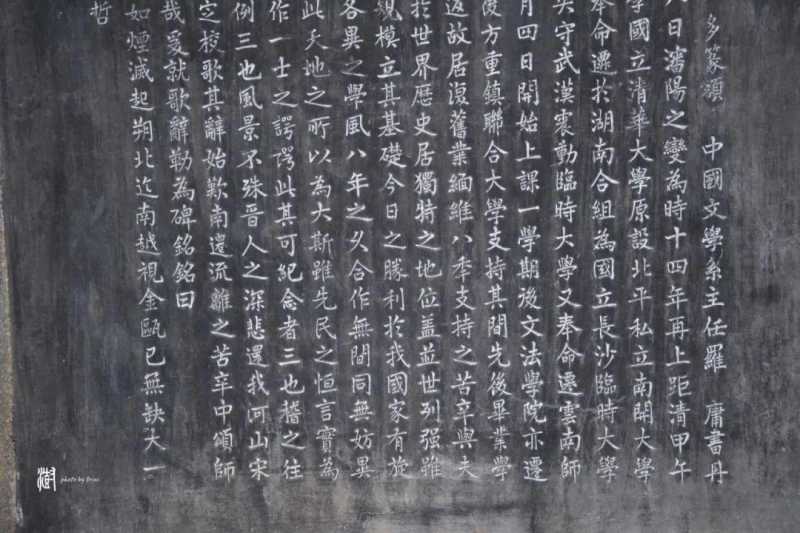 多篆額 中國文學系主任羅 庸書丹
八日瀋陽之變為時十四年再上距清甲午
學國立清華大學原設北平私立南開大學
奉命遷於湖南合組為國立長沙臨時大學
失守武漢震動臨時大學又奉命遷雲南師
月四日開始上課一學期後文法學院亦遷
後方重鎮聯合大學支持其間先後畢業學
返故居復舊業緬維八秊支持之苦辛與夫
於世界歷史居獨特之地位蓋並世列强雖
規模立其基礎今日之勝利於我國家有旋
各異之學風八年之久合作無間同無妨異
此天地之所以為大斯雖先民之恒言實為
作一士之諤諤此其可紀念者三也稽之往
例三也風景不殊晉人之深悲還我河山宋
定校歌其辭始歎南遷流離之苦辛中頌師
哉爰就歌辭勒為碑銘銘曰
如煙滅起朔北迄南越視金甌已無缺大一
哲
photo by